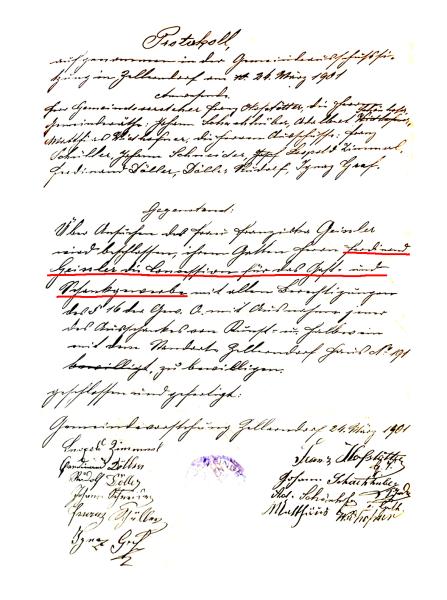 Protokoll,
aufgenommen in der Gemeindeausschußsi-
tzung in Zellerndorf am 24. März 1901
Anwesende
Herr Gemeindevorsteher Franz die Herren
Gemeinderäthe: Johann
Matthias die Herren Ausschüsse: Franz
Schüller, Johann Schneider, Leopold Zimmel,
Ferdinand Döller, Rudolf, Ignaz Graf.
Gegenstand:
Über Ansuchen der Frau Franziska Geissler
wird beschlossen, ihrem Gatten Herrn Ferdinand
Geissler die Concession für das Gast- und
Schankgewerbe mit allen Berechtigungen
des § 16 der Gew. O. mit Ausnahme jener
des Ausschankes von Kunst- u. Halbwein
mit dem Standorte Zellerndorf Haus No 191
bewilligt, zu bewilligen.
geschlossen und gefertigt:
Gemeindevorstehung Zellerndorf 24. März 1901
Leopold Zimmel
Ferdinand Döller
Rudolf
Johann Schneider
Franz Schüller
Ignaz Graf
Franz
Johann
Matthias